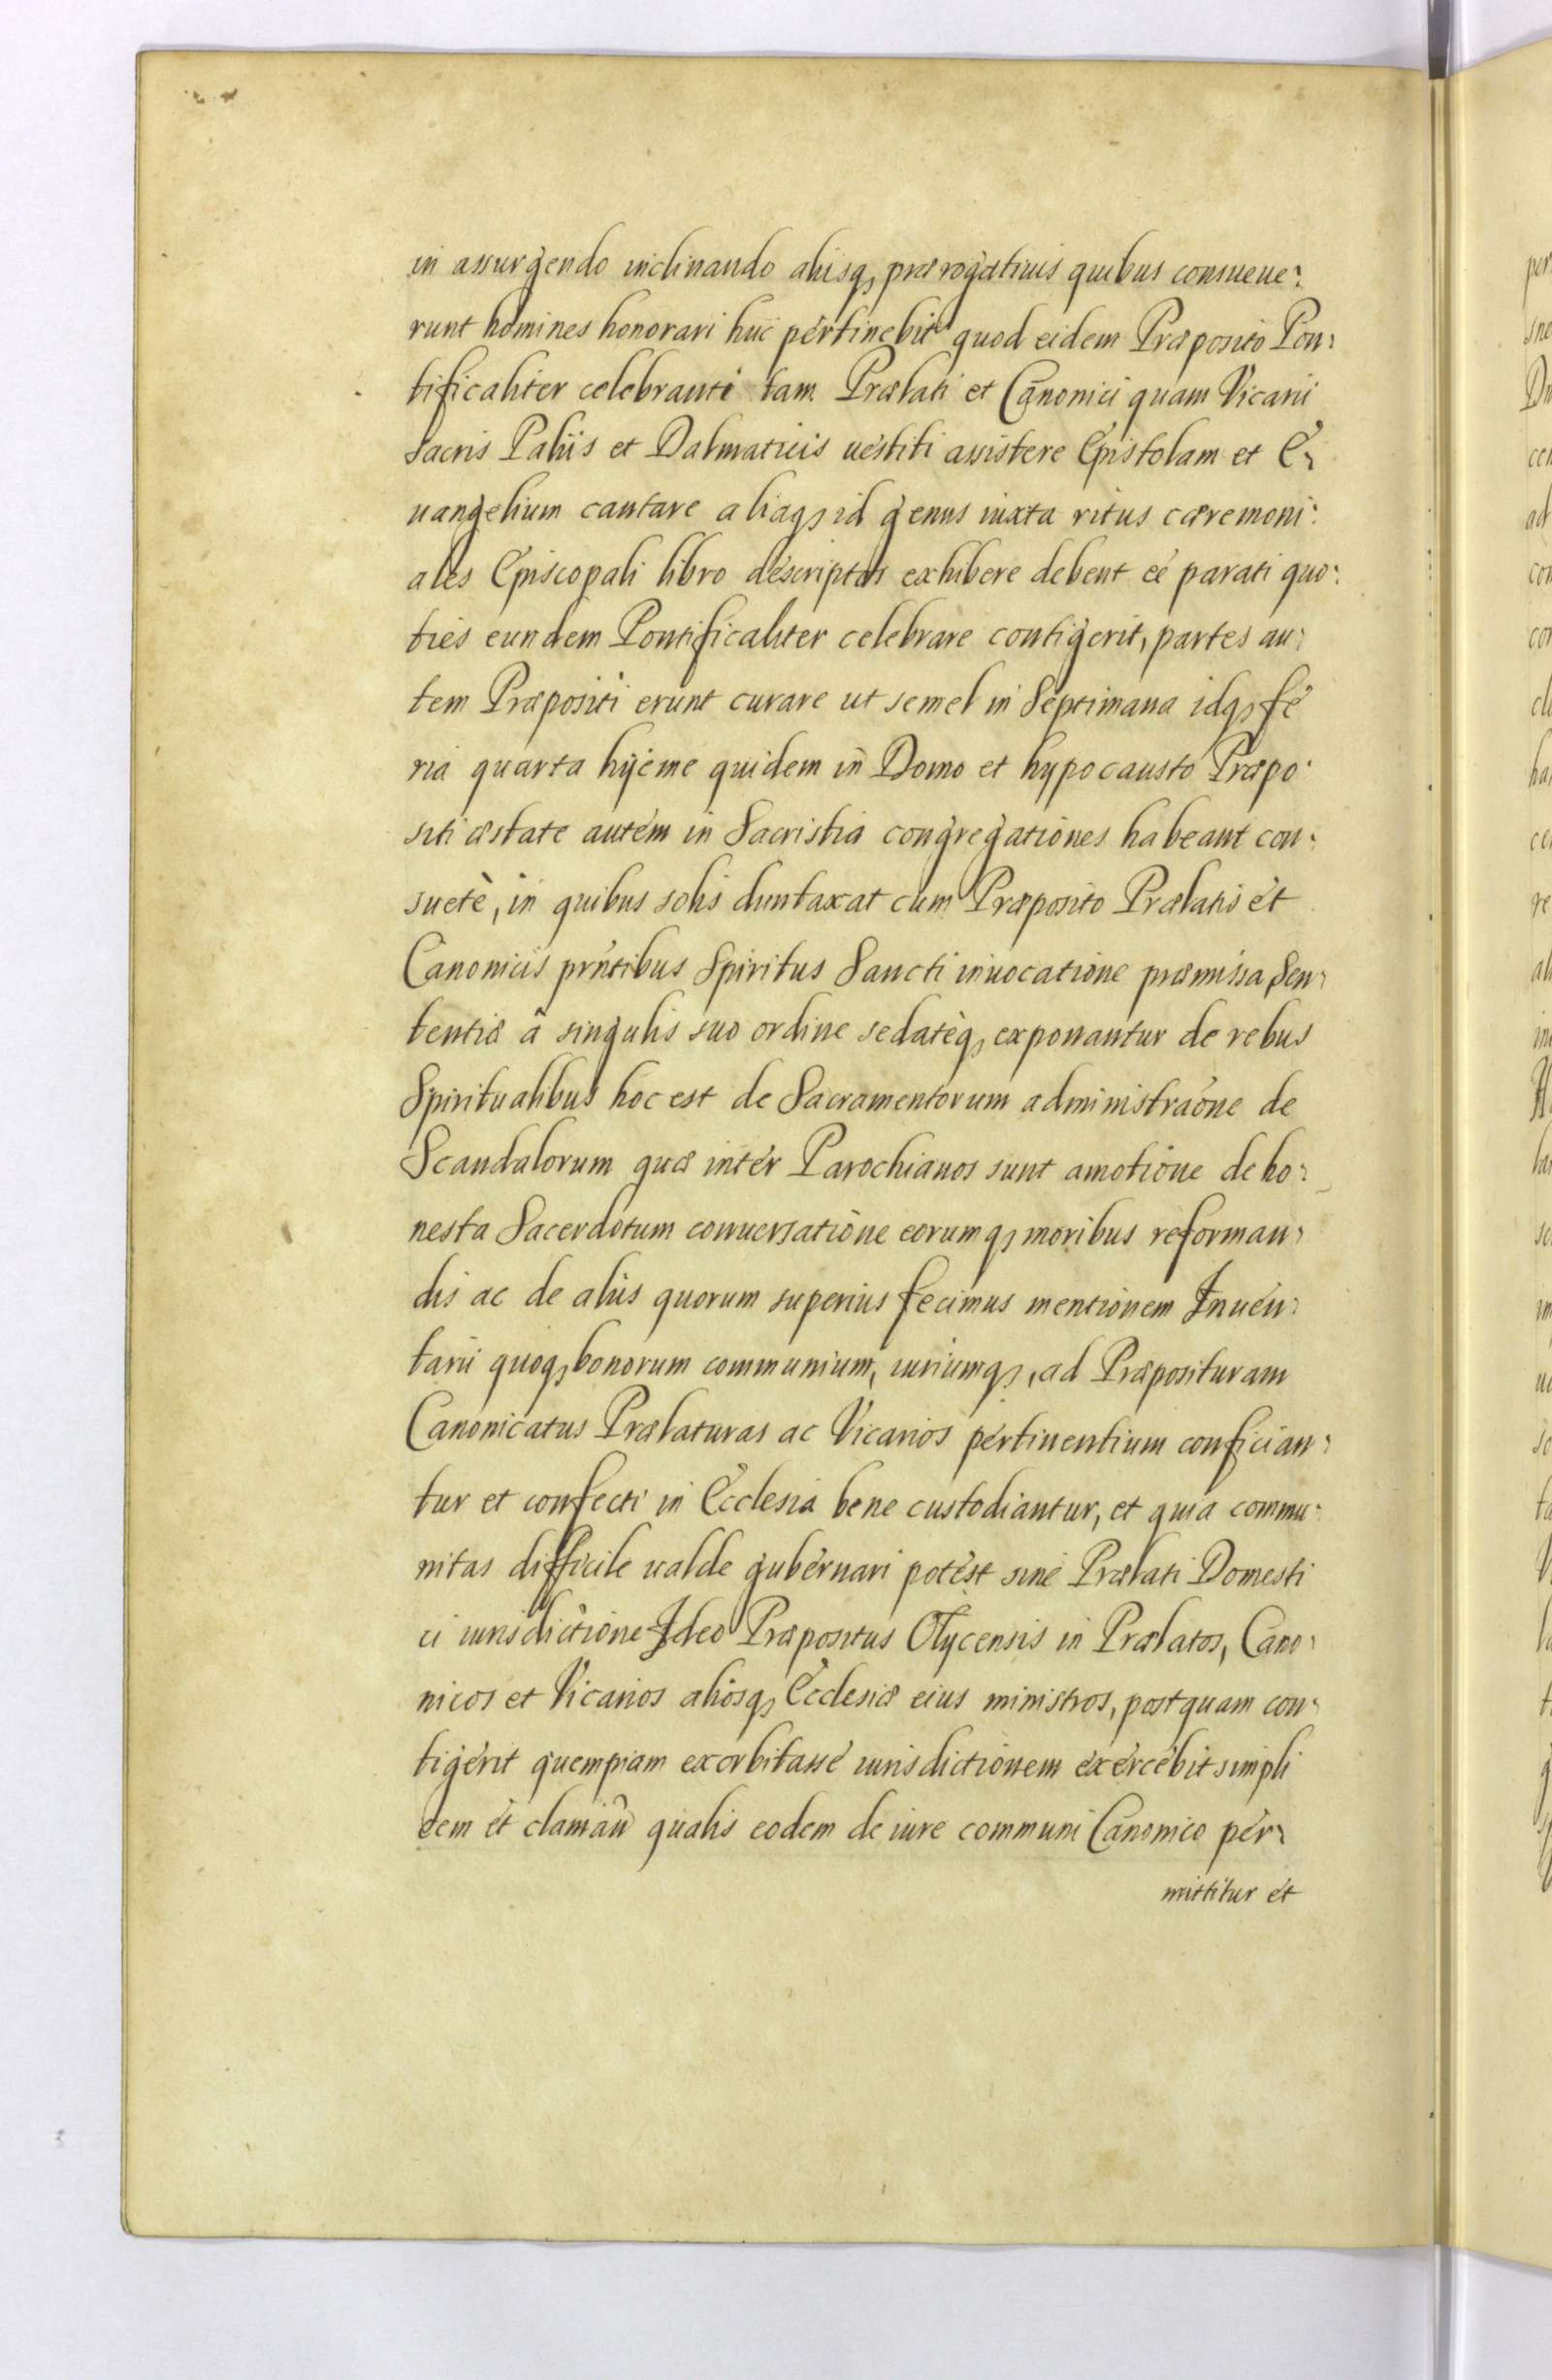 in assurgendo inclinando alijsq, prærogatiuis quibus consueue:
runt homines honorari huc pertinebit quod eidem Præposito Pon:
tificaliter celebranti tam Prælati et Canonici quam Vicarii
Sacris Paliis et Dalmaticis uestiti assistere Epistolam et E:
uangelium cantare aliaq, id genus iuxta ritus cæremoni:
ales Episcopali libro descriptos exhibere debent eé parati quo:
ties eundem Pontificaliter celebrare contigerit, partes au:
tem Præpositi erunt curare ut semel in Septimana idq, fe
ria quarta hyeme quidem in Domo et hypocausto Præpo:
siti æstate autem in Sacristia congregationes habeant con:
suetè, in quibus solis duntaxat cum Præposito Prælatis et
Canonicis pñtibus Spiritus Sancti inuocatione præmissa Sen:
tentiæ à singulis suo ordine sedatèq, exponantur de rebus
Spiritualibus hoc est de Sacramentorum administraõne de
Scandalorum quæ inter Parochianos sunt amotione de ho:
nesta Sacerdotum conuersatione eorumq, moribus reforman:
dis ac de aliis quorum superius fecimus mentionem Inuen:
tarii quoq, bonorum communium, iuriumq, ad Præposituram
Canonicatus Prælaturas ac Vicarios pertinentium confician:
tur et confecti in Ecclesia bene custodiantur, et quia commu:
nitas difficile ualde gubernari potest sine Prælati Domesti
ci iurisdictione Ideo Præpositus Olycensis in Prælatos, Cano:
nicos et Vicarios aliosq, Ecclesiæ eius ministros, postquam con:
tigerit quempiam exorbitasse iurisdictionem exercebit simpli
cem et qualis eodem de iure communi Canonico per:
mittitur et